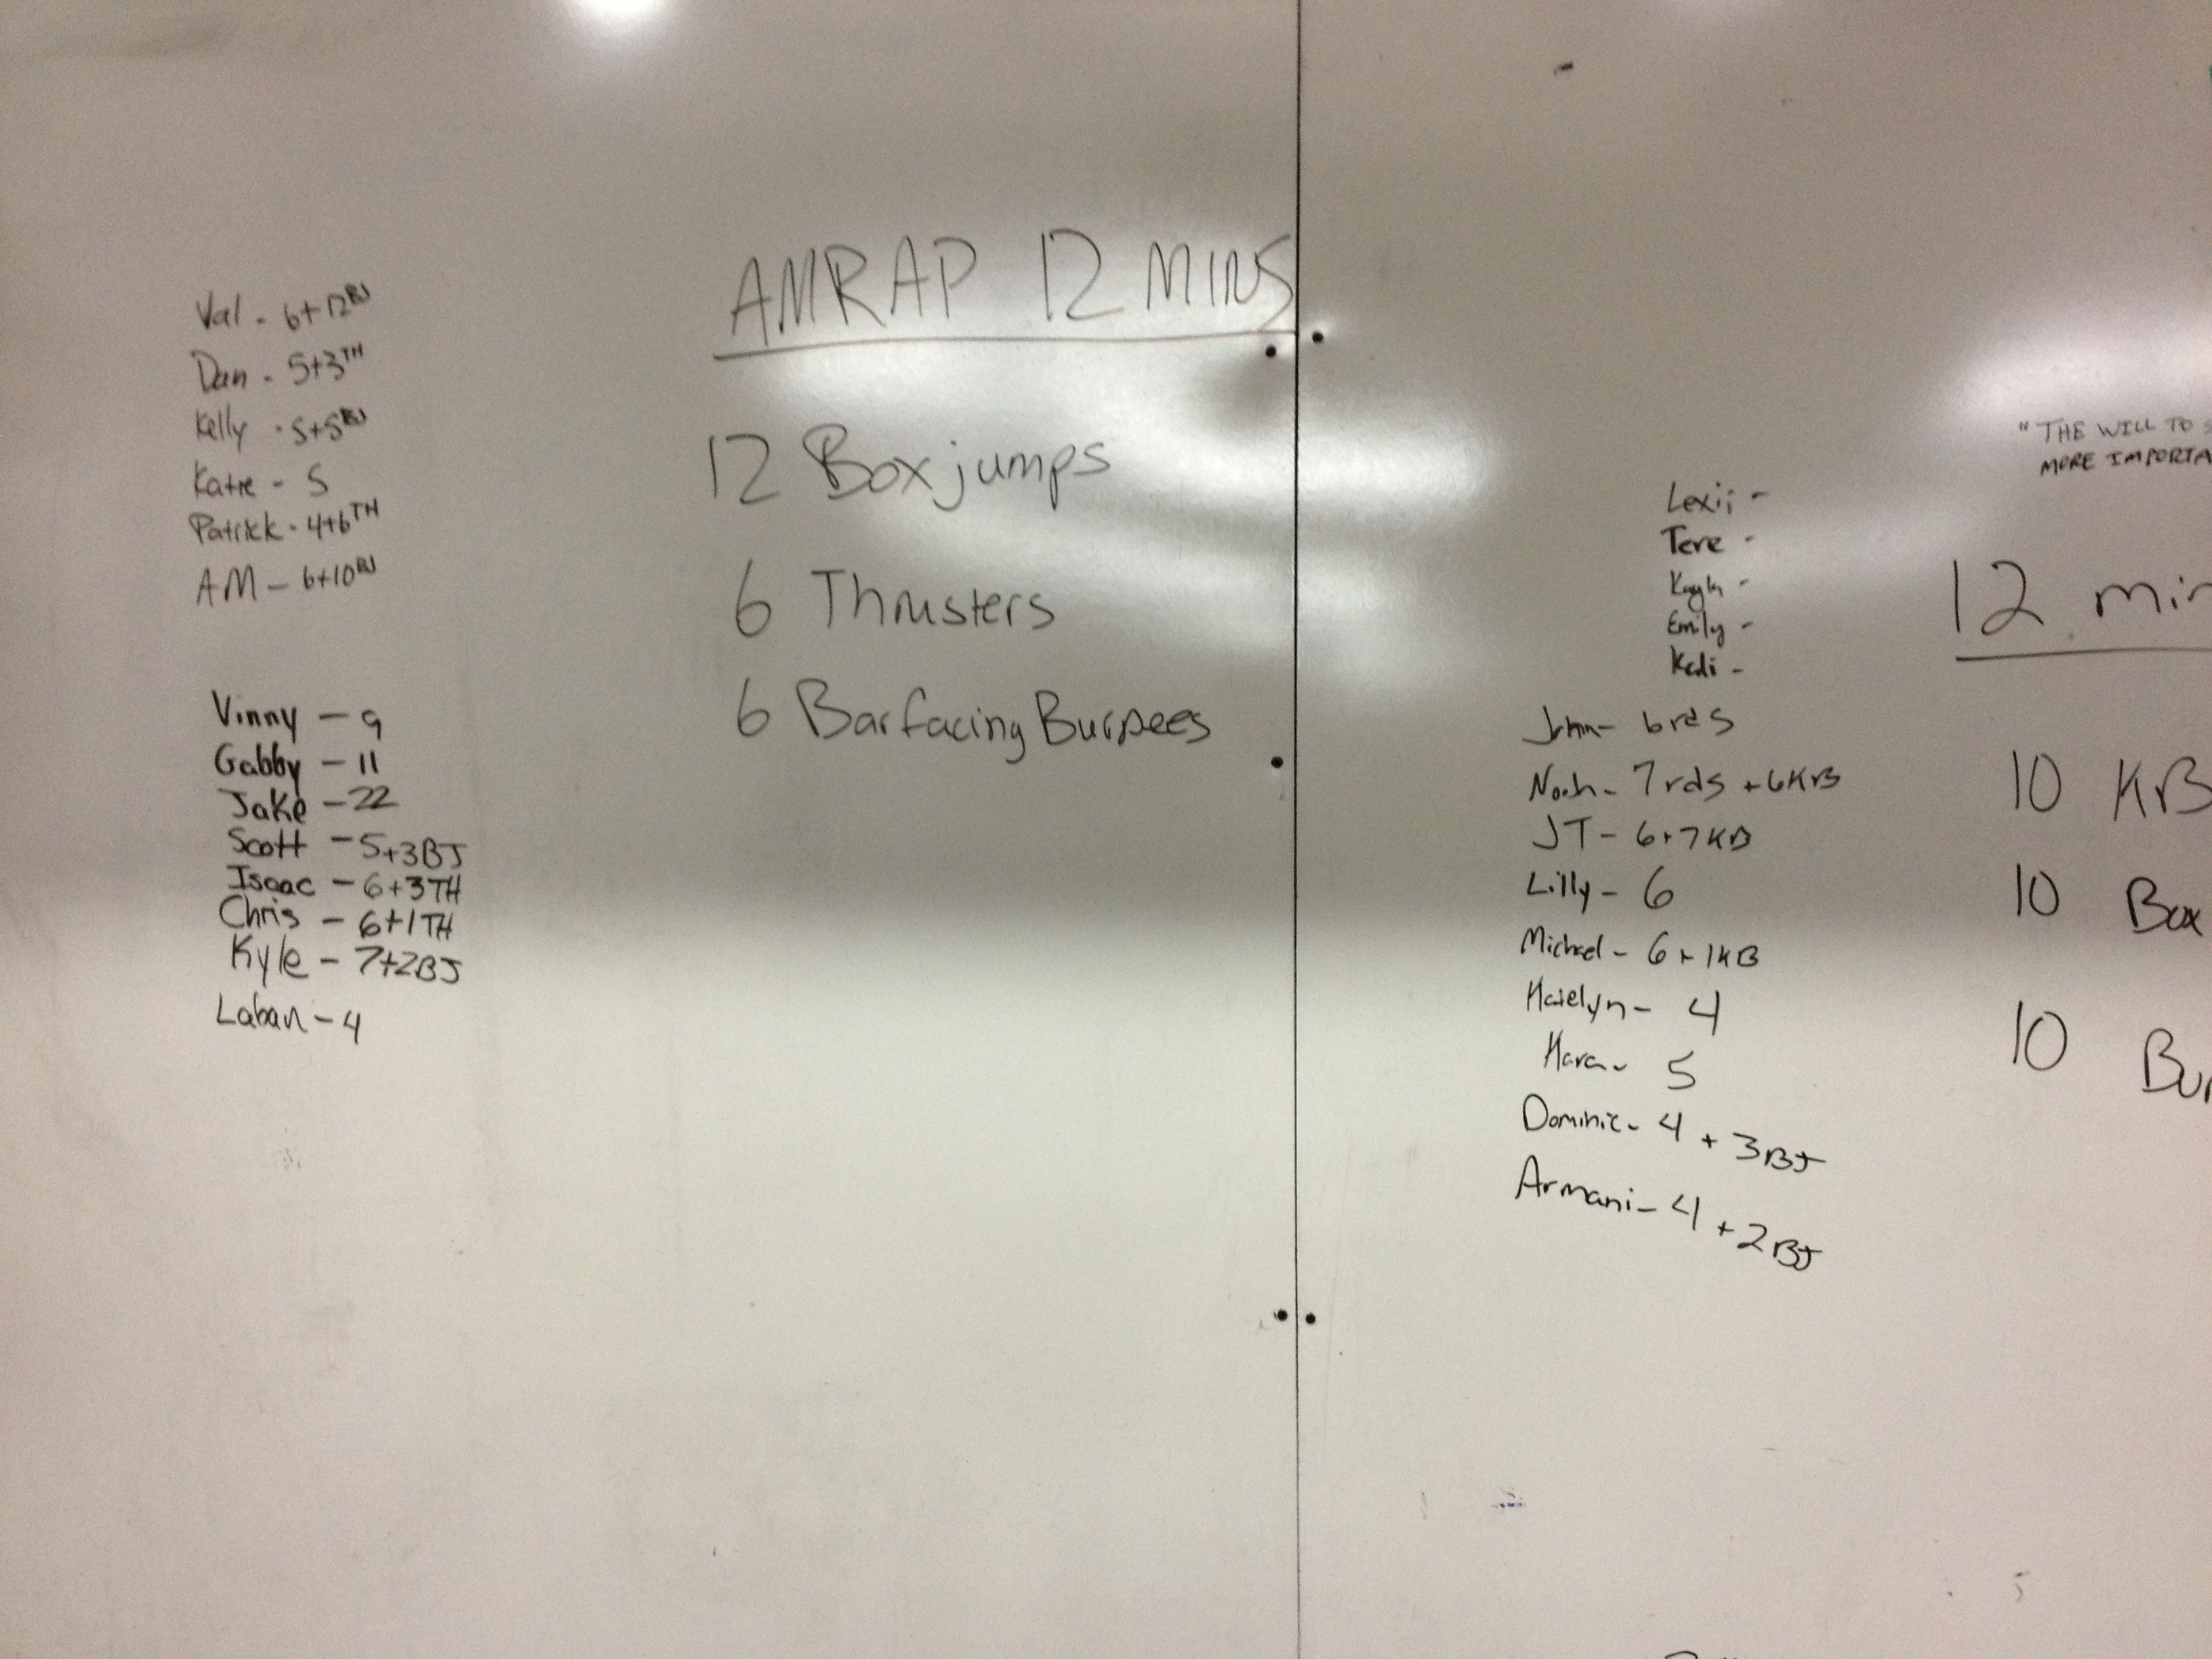 Val - 6+12BJ
Dan - 5+3TH
Kelly - 5+5BJ
Katie - 5
Patrick - 4+6TH
AM - 6+10BJ
Vinny - 9
Gabby - 11
Jake - 22
Scott - 5+3BJ
Isaac - 6+3TH
Chris - 6+1TH
Kyle - 7+2BJ
Laban - 4
AMRAP 12 MINS
12 Box jumps
6 Thrusters
6 Bar facing Burpees
Lexii -
Tere -
Emily -
John - 6rds
Noah - 7rds +6KB
JT - 6+7KB
Lilly - 6
Michael - 6+1KB
4
5
Dominic - 4 + 3BJ
Armani - 4 + 2BJ
"THE WILL TO
MORE IMPORTA
12 min
10 KB
10 Box
10 Bur